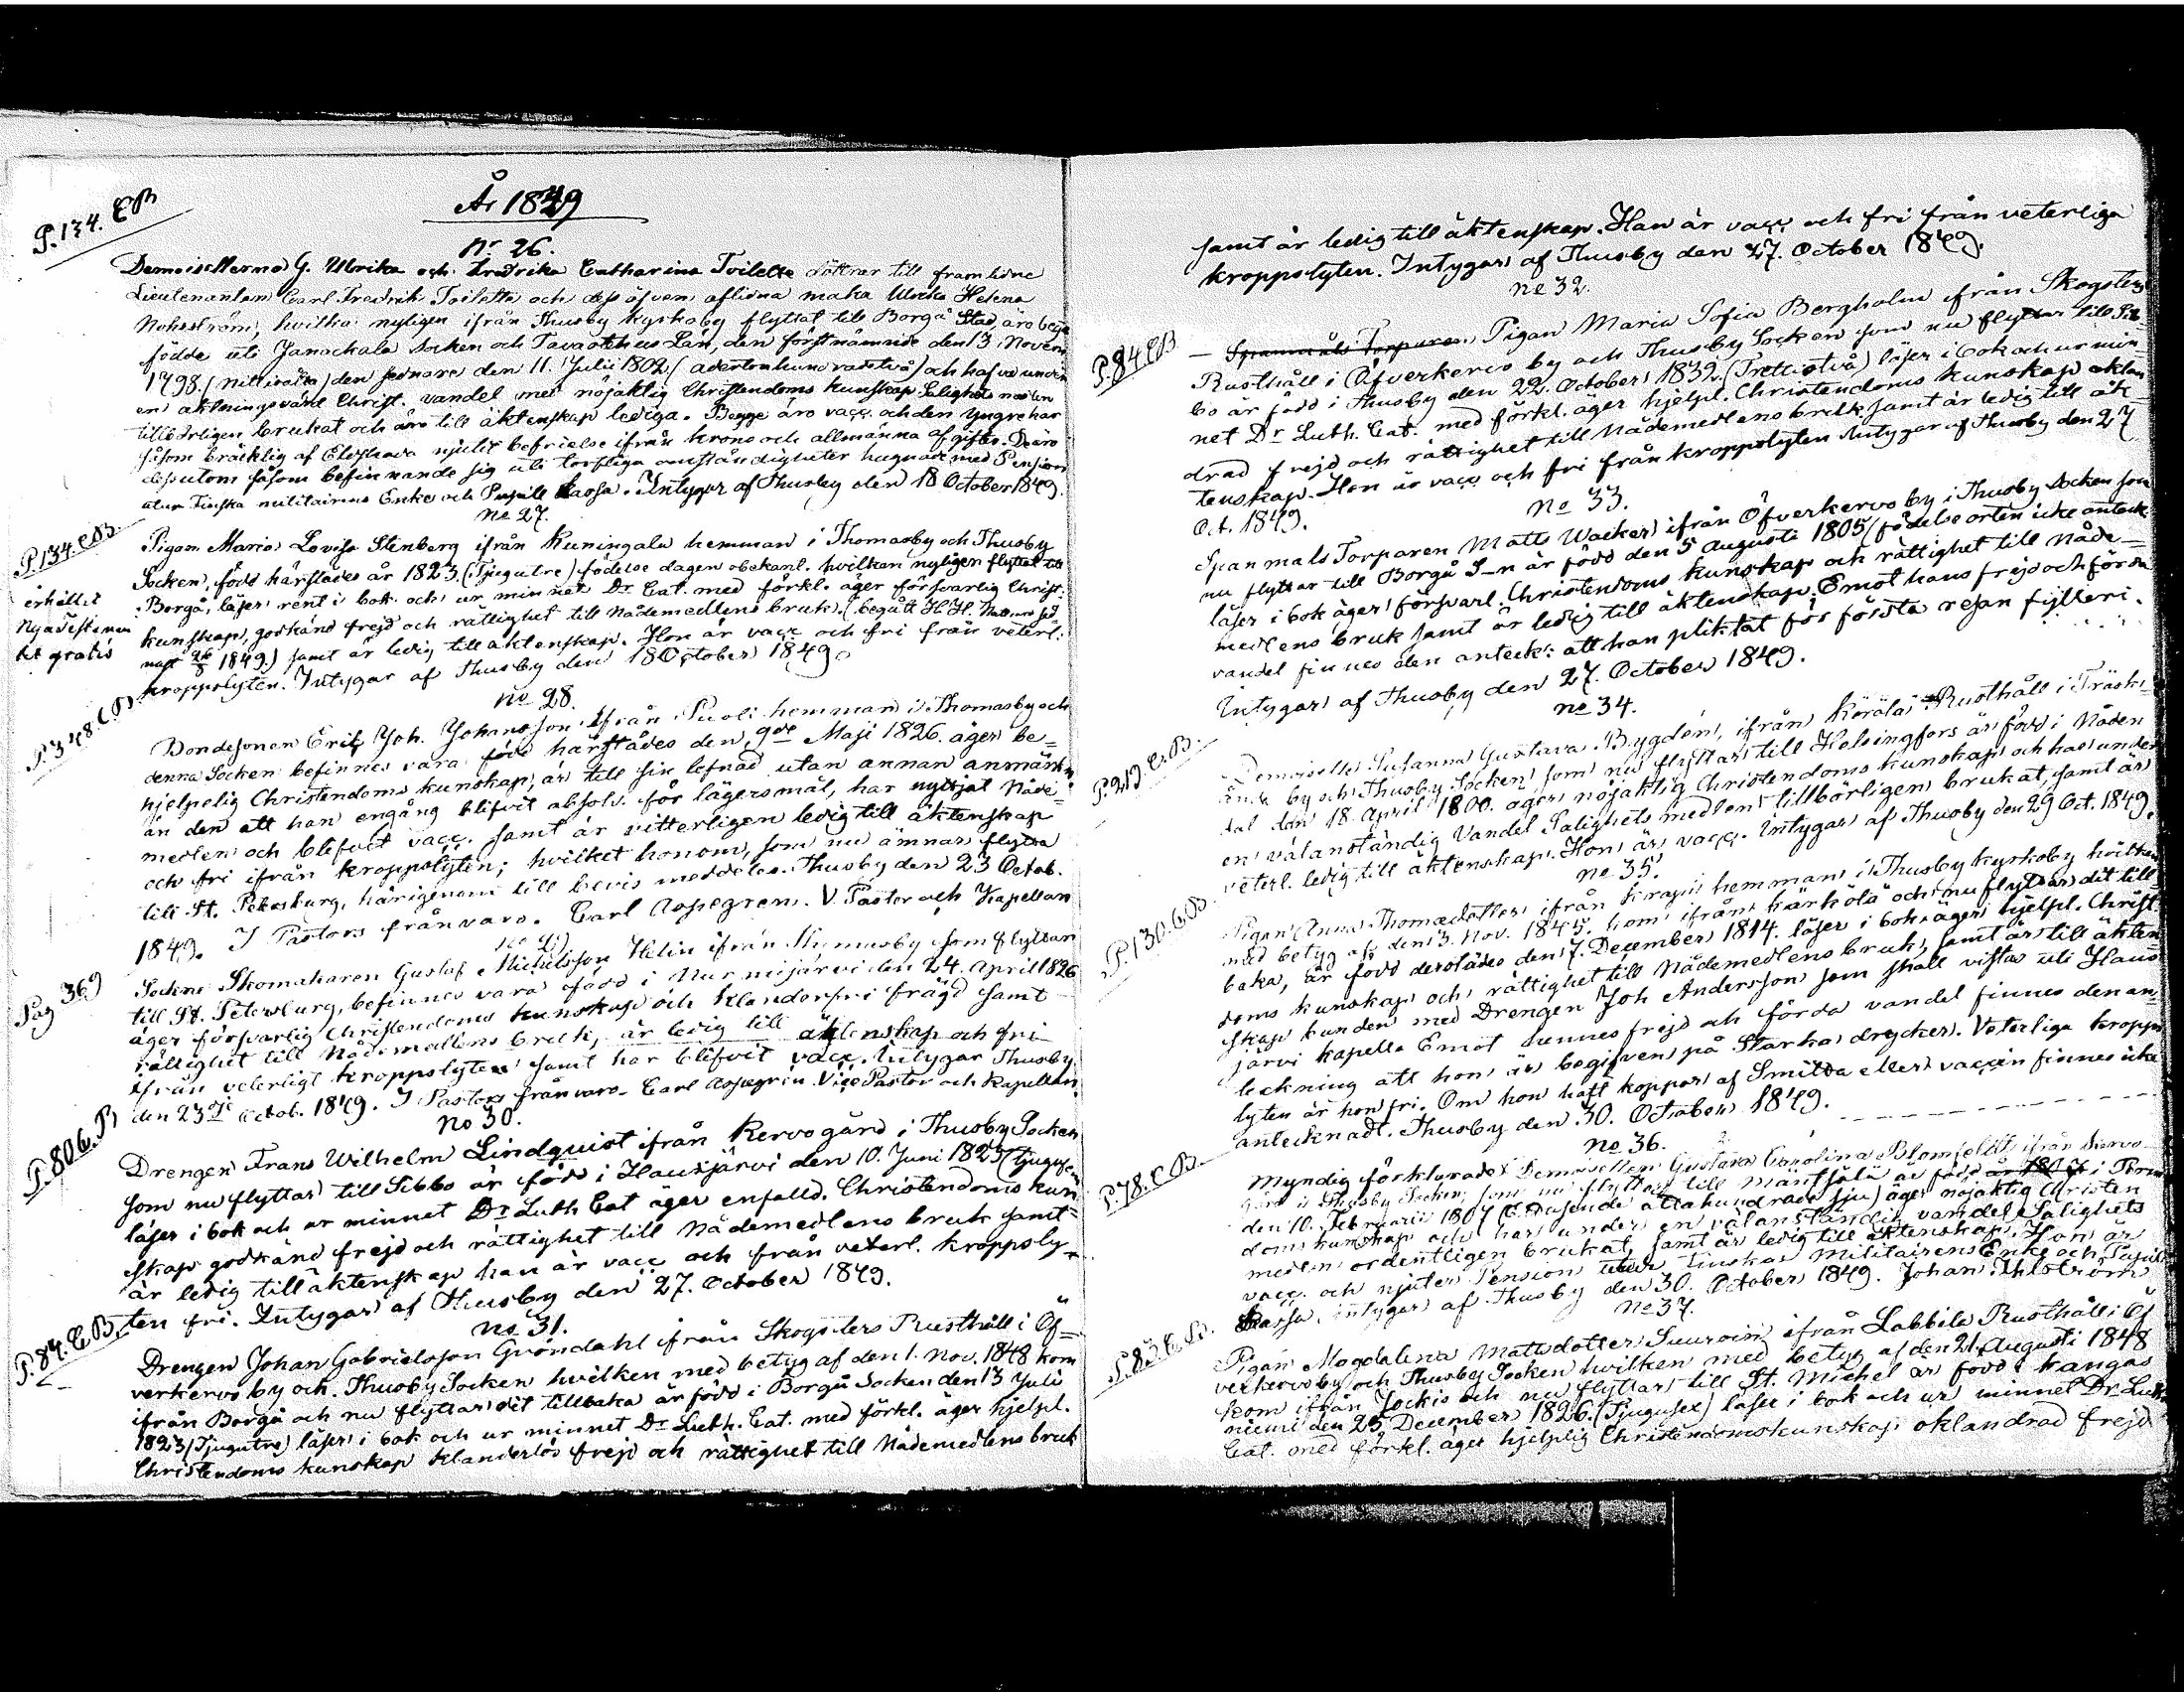 År 1849
P. 134. C B
Nr 26.
Demoisellerna G. Ulrika och Fredrika Catharina Toilette döttrar till framlidne
Lieutenanten Carl Fredrik Toilette och dess äfven aflidna maka Ulrika Helena
hvilka nyligen ifrån Thusby Kyrkoby flyttat till Borgå Stad, äro begge
födde uti Janackala Socken och Tavastehus Län, den förstnämnde den 13 Novem
1798. (Nittioåtta) den sednare den 11. Julii 1802. (adertonhundradetvå) och hafva under
en aktningsvärd Christ. vandel med nöjaktig Christendoms kunskap Salighets medlen
tillbörligen brukat och äro till äktenskap lediga. Begge äro vacc. och den yngre har
såsom bräcklig af Eldskada njutit befrielse ifrån krono och allmänna afgifter. De äro
dessutom såsom befinnande sig uti torftiga omständigheter hugnade med Pension
utur Finska militairens Enke och Pupill Kassa. Intygar af Thusby den 18 October 1849.
P. 134. C B.
erhållit
Nya Testamen
tet gratis
No 27.
Pigan Maria Lovisa Stenberg ifrån Kuningala hemman i Thomasby och Thusby
Socken, född härstädes år 1823. (Tjugutre) födelse dagen obekant. hvilkan nyligen flyttat till
Borgå, läser rent i bok och ur minnet Dr. Cat. med förkl. äger försvarlig Christ.
kunskap, godkänd frejd och rättighet till Nådemedlens bruk. (begått H. H. Nattvard sed
nast 26/8 1849.) samt är ledig till äktenskap. Hon är vacc och fri från veterl.
kroppslyten. Intygar af Thusby den 18 October 1849.
P. 348. C. B
No 28.
Bondesonen Erik Joh. Johansson ifrån Puoli hemman i Thomasby och
denna Socken befinnes vara född härstädes den 9de Maji 1826. äger be=
hjelpelig Christendoms kunskap, är till sin lefnad utan annan anmärkn
än den att han engång blifvit absolv. för lägersmål, har nyttjat Nåde=
medlen och blifvit vacc. samt är vitterligen ledig till äktenskap
och fri ifrån kroppslyten; hvilket honom, som nu ämnar flytta
till St. Petersburg, härigenom till bevis meddeles. Thusby den 23 Octob.
1849. I Pastors frånvaro. Carl Aspegren. V. Pastor och Kapellan
Pag 369
No 29
Sockne Skomakaren Gustaf Michelsson Helin ifrån Thomasby som flyttar
till St. Petersburg, befinnes vara född i Nurmijärvi den 24. April 1826
äger försvarlig Christendoms kunskap och klanderfri frägd samt
rättighet till Nådemedlens bruk, är ledig till äktenskap och fri
ifrån veterligt kroppslyten samt har blifvit vacc. Intygar Thusby
den 23dje Octob. 1849. I Pastors frånvaro. Carl Aspegrén. Vice Pastor och Kapellan.
P. 806. B
No 30.
Drengen Frans Wilhelm Lindquist ifrån Kervo gård i Thusby Socken
som nu flyttar till Sibbo är född i Hausjärvi den 10. Juni
läser i bok och ur minnet Dr Luth Cat äger enfalld. Christendoms kun
skap godkänd frejd och rättighet till Nådemedlens bruk samt
är ledig till äktenskap han är vacc och från veterl. kroppsly-
ten fri. Intygar af Thusby den 27. October 1849.
P. 84. C B.
No 31.
Drengen Johan Gabrielsson Gröndahl ifrån Skogsters Rusthåll i Öf=
verkervo by och Thusby Socken hvilken med betyg af den 1. Nov. 1848 kom
ifrån Borgå och nu flyttar dit tillbaka är född i Borgå Socken den 13 Juli
1823 (Tjugutre) läser i bok och ur minnet Dr Luth. Cat. med förkl. äger hjelpl.
Christendoms kunskap klanderlös frejd och rättighet till Nådemedlens bruk
samt är ledig till äktenskap. Han är vacc och fri från veterliga
kroppslyten. Intygar af Thusby den 27. October 1849.
P. 84 C B
No 32.
— Spannmåls Torparen Pigan Maria Sofia Bergholm ifrån Skogsters
Rusthåll i Öfverkervo by och Thusby Socken som nu flyttar till Sib-
bo är född i Thusby den 22. October 1832. (Trettiotvå) läser i bok och ur min=
net Dr Luth. Cat. med förkl. äger hjelpl. Christendoms kunskap oklan
drad frejd och rättighet till Nådemedlens bruk samt är ledig till äk=
tenskap. Hon är vacc och fri från kroppslyten. Intygar af Thusby den 27
Oct. 1849.
No 33.
Spanmåls Torparen Matts Wacker ifrån Öfverkervo by i Thusby Socken som
nu flyttar till Borgå S-n är född den 5 Augusti 1805 (födelse orten icke anteck
läser i bok äger försvarl. Christendoms kunskap och rättighet till Nåde=
medlens bruk samt är ledig till äktenskap. Emot hans frejd och förda
vandel finnes den anteck: att han pliktat för första resan fylleri.
Intygar af Thusby den 27. October 1849.
P. 219. C. B.
No 34.
Demoiselle Susanna Gustava Bygdén, ifrån Körälä Rusthåll i Träsk-
ända by och Thusby Socken, som nu flyttar till Helsingfors är född i Nåden
dal den 18. April 1800. äger nöjaktig Christendoms kunskap och har under
en välanständig Vandel Salighets medlen tillbörligen brukat, samt är
veterl. ledig till äktenskap. Hon är vacc. Intygar af Thusby den 29 Oct. 1849.
P. 130. C. B
No 35.
Pigan Anna Thomædotter ifrån Krapi hemman i Thusby Kyrkoby hvilken
med betyg af den 3. Nov. 1845. kom ifrån Kärkölä och nu flyttar dit till
baka, är född derstädes den 7. December 1814. läser i bok, äger hjelpl. Christ
doms kunskap och rättighet till Nådemedlens bruk, samt är till äkten
skap bunden med Drengen Joh Andersson som skall vistas uti Haus
järvi kapell. Emot hennes frejd och förda vandel finnes den an-
teckning att hon är begifven på Starka drycker. Veterliga kropps
lyten är hon fri. Om hon haft koppor af Smitta eller vaccin finnes icke
antecknadt. Thusby den 30. October 1849.
P. 78. C B.
No 36.
Myndig förklarade Demoisellen Gustava Carolina Blomfeldt ifrån Kervo
gård i Thusby Socken, som nu flyttar till Mäntsälä är född i
den 10. Februarii 1807 (Ettusende åttahundrade sju) äger nöjaktig Christen
doms kunskap och har under en välanständig vandel Salighets
medlen ordentligen brukat, samt är ledig till äktenskap. Hon är
vacc. och njuter Pension utur Finska Militairens Enke och Pupill
Kassa, intygar af Thusby den 30. October 1849. Johan Ahlström
P. 83. C. B.
No 37.
Pigan Magdalena Mattsdotter Suuroin ifrån Labbila Rusthåll i Öf
verkervo by och Thusby Socken hvilken med betyg af den 21. Augusti 1848
kom ifrån Jockis och nu flyttar till St. Michel är född i Kangas
niemi den 25 December 1826. (Tjugusex) läser i bok och ur minnet Dr Luth
Cat. med förkl. äger hjelplig Christendomskunskap oklandrad frejd